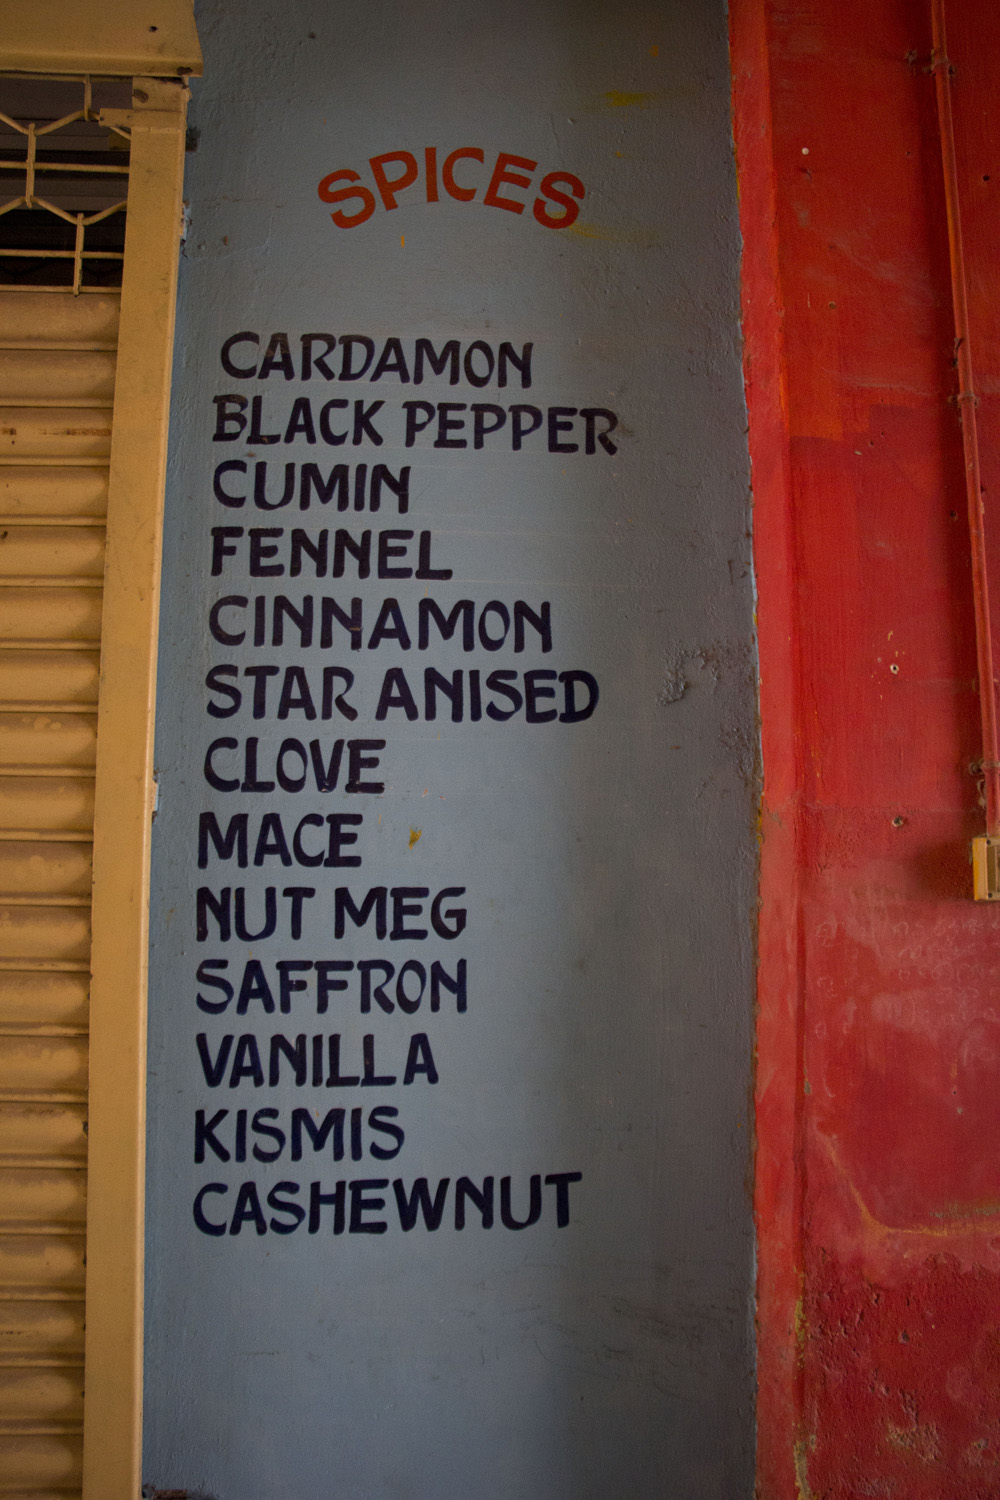 SPICES
CARDAMON
BLACK PEPPER
CUMIN
FENNEL
CINNAMON
STAR ANISED
CLOVE
MACE
NUT MEG
SAFFRON
VANILLA
KISMIS
CASHEWNUT